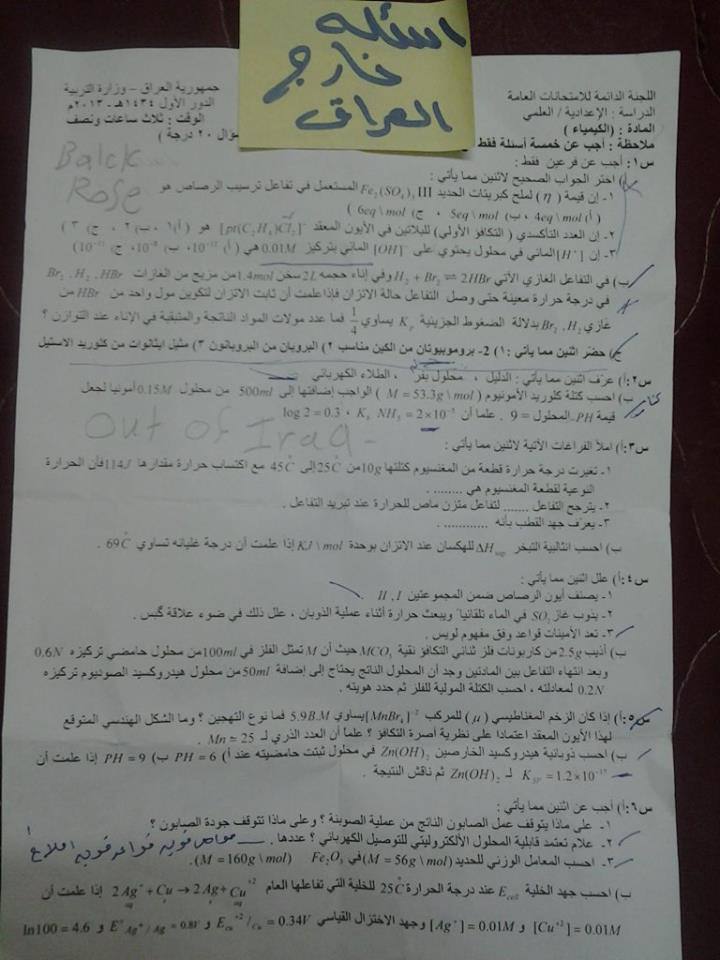 اسئله
خارج
العراق
اللجنة الدائمة للامتحانات العامة
جمهورية العراق – وزارة التربية
الدراسة : الإعدادية / العلمي
الدور الأول ١٤٣٤هـ - ٢٠١٣م
المادة : (الكيمياء )
الوقت : ثلاث ساعات ونصف
ملاحظة : أجب عن خمسة أسئلة فقط
٢٠ درجة )
Balck
Rose
س١: أجب عن فرعين فقط :
أ) اختر الجواب الصحيح لاثنين مما يأتي :
١- إن قيمة ( η ) لملح كبريتات الحديد III Fe2(SO4)3 المستعمل في تفاعل ترسيب الرصاص هو
( أ) 4eq\mol ، ب) 5eq\mol ، ج) 6eq\mol )
٢- إن العدد التأكسدي ( التكافؤ الأولي) للبلاتين في الأيون المعقد [pt(C2H4)Cl3]- هو ( أ) ١ ، ب) ٢ ، ج) ٣ )
٣- إن [H+] المائي في محلول يحتوي على [OH]- المائي بتركيز 0.01M هي ( أ) 10-12 ، ب) 10-8 ، ج) 10-11 )
ب) في التفاعل الغازي الأتي H2 + Br2 ⇌ 2HBr وفي إناء حجمه 2L سخن 1.4mol من مزيج من الغازات Br2 , H2 , HBr
في درجة حرارة معينة حتى وصل التفاعل حالة الاتزان فإذا علمت أن ثابت الاتزان لتكوين مول واحد من HBr من
غازي Br2 , H2 بدلالة الضغوط الجزيئية Kp يساوي 1/4 فما عدد مولات المواد الناتجة والمتبقية في الإناء عند التوازن ؟
ج) حضّر اثنين مما يأتي : ١) 2- بروموبيوتان من الكين مناسب ٢) البروبان من البروبانون ٣) مثيل ايثانوات من كلوريد الاستيل
س٢: أ) عرّف اثنين مما يأتي : الدليل ، محلول بفر ، الطلاء الكهربائي
ب) احسب كتلة كلوريد الأمونيوم ( M = 53.3g\mol ) الواجب إضافتها إلى 500ml من محلول 0.15M أمونيا لجعل
قيمة PH المحلول = 9 . علما أن Kb NH3 = 2×10-5 ، log 2 = 0.3
Out of Iraq -
س٣: أ) املأ الفراغات الأتية لاثنين مما يأتي :
١- تغيرت درجة حرارة قطعة من المغنسيوم كتلتها 10g من 25°C إلى 45°C مع اكتساب حرارة مقدارها 114J فأن الحرارة
النوعية لقطعة المغنسيوم هي ........ .
٢- يترجح التفاعل ....... لتفاعل متزن ماص للحرارة عند تبريد التفاعل .
٣- يعرّف جهد القطب بأنه ............ .
ب) احسب انثالبية التبخر ΔHvap للهكسان عند الاتزان بوحدة KJ\mol إذا علمت أن درجة غليانه تساوي 69°C .
س٤: أ) علل اثنين مما يأتي :
١- يصنف أيون الرصاص ضمن المجموعتين II , I
٢- يذوب غاز SO2 في الماء تلقائيا ويبعث حرارة أثناء عملية الذوبان ، علل ذلك في ضوء علاقة گبس .
٣- تعد الأمينات قواعد وفق مفهوم لويس .
ب) أذيب 2.5g من كاربونات فلز ثنائي التكافؤ نقية MCO3 حيث أن M تمثل الفلز في 100ml من محلول حامضي تركيزه 0.6N
وبعد انتهاء التفاعل بين المادتين وجد أن المحلول الناتج يحتاج إلى إضافة 50ml من محلول هيدروكسيد الصوديوم تركيزه
0.2N لمعادلته ، احسب الكتلة المولية للفلز ثم حدد هويته .
س٥: أ) إذا كان الزخم المغناطيسي ( μ ) للمركب [MnBr4]-2 يساوي 5.9B.M فما نوع التهجين ؟ وما الشكل الهندسي المتوقع
لهذا الأيون المعقد اعتمادا على نظرية أصرة التكافؤ ؟ علما أن العدد الذري لـ Mn = 25 .
ب) احسب ذوبانية هيدروكسيد الخارصين Zn(OH)2 في محلول ثبتت حامضيته عند أ) PH = 6 ب) PH = 9 إذا علمت أن
Ksp = 1.2×10-17 لـ Zn(OH)2 ثم ناقش النتيجة .
س٦: أ) أجب عن اثنين مما يأتي :
١- على ماذا يتوقف عمل الصابون الناتج من عملية الصوبنة ؟ وعلى ماذا تتوقف جودة الصابون ؟
٢- علام تعتمد قابلية المحلول الألكتروليتي للتوصيل الكهربائي ؟ عددها .
٣- احسب المعامل الوزني للحديد (M = 56g\mol) في Fe2O3 (M = 160g\mol) .
ب) احسب جهد الخلية Ecell عند درجة الحرارة 25°C للخلية التي تفاعلها العام 2Ag+ + Cu → 2Ag + Cu+2 إذا علمت أن
[Cu+2] = 0.01M و [Ag+] = 0.01M وجهد الاختزال القياسي E Cu+2/Cu = 0.34V و E° Ag+/Ag = 0.8V و ln100 = 4.6